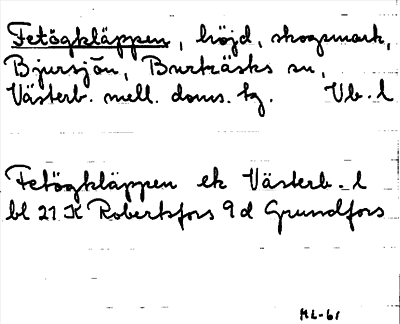 Fetögkläppen, höjd, skogsmark,
Bjursjön, Burträsks sn,
Västerb. mell. doms. tg. Vb. l
Fetögkläppen ek Västerb. l
bl 21 K Robertsfors 9 d Grundfors
ML-61